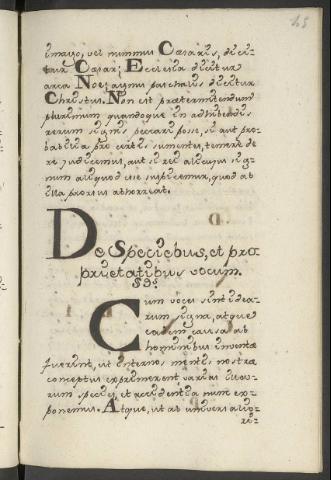 45
imago, vel nummus Cæsaris, dici-
tur Cæsar; Ecclesia dicitur
arca Noe; agnus paschalis dicitur
Christus. Non est prætermittendum
plurimum quandoque in adhibendis
rerum signis peccari posse, si aut pro-
babilia pro certis sumentes, temere de
re judicemus, aut si rei alicujus sig-
num aliquod esse suspicemur, quod ab
illa prorsus abhorreat.
De Speciebus, et pro
prietatibus vocum.
Cum voces sint idea-
rum signa, atque
ea de causa ab
hominibus inventæ
fuerint, ut internos mentis nostræ
conceptus exprimerent varias illa-
rum species, et accidentia nunc ex-
ponemus. Atque, ut ab universaliò-